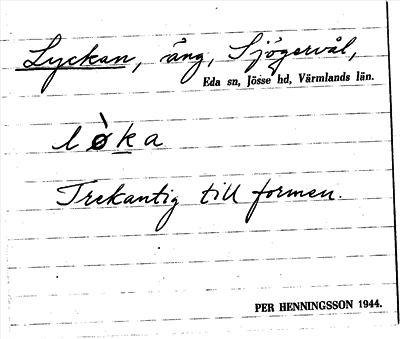 Lyckan, äng, Sjögervål,
Eda sn, Jösse hd, Värmlands län.
lø̀ka
Trekantig till formen.
PER HENNINGSSON 1944.